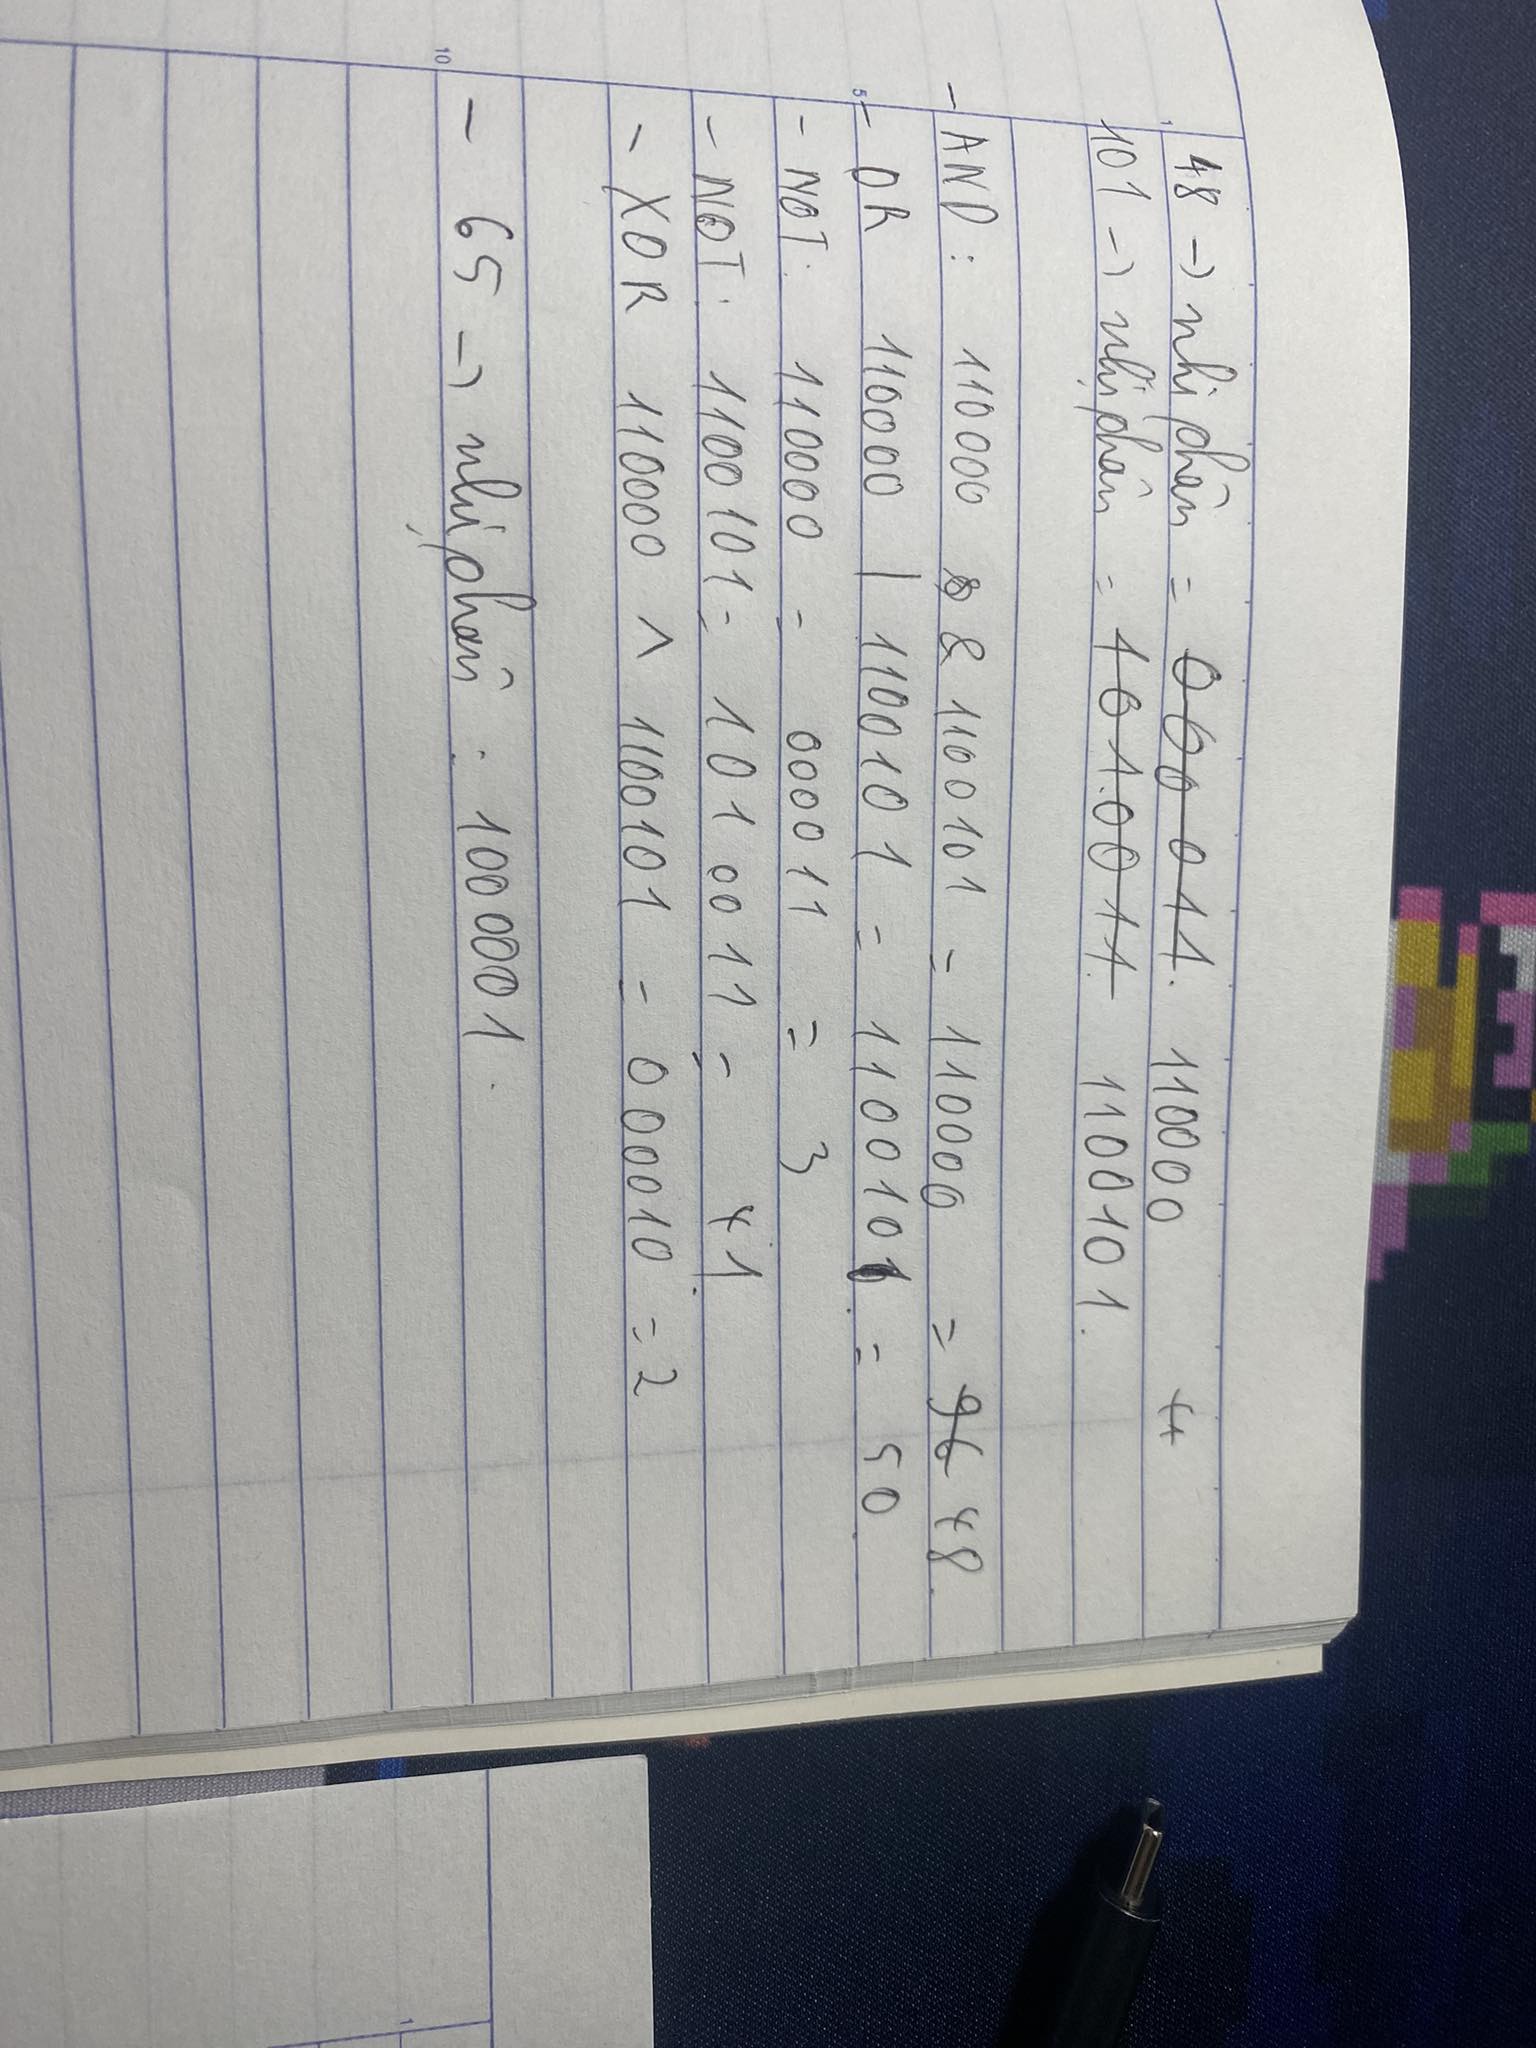 48 → nhị phân = 000011. 110000
101 → nhị phân = 1010011 1100101.
- AND: 110000 & 1100101 = 110000 = 96 48.
- OR 110000 | 1100101 = 1100101. = 50
- NOT: 110000 = 000011 = 3
- NOT: 1100101 = 1010011 = 41
- XOR 110000 ^ 1100101 = 000010 = 2
- 65 → nhị phân: 1000001.
1
5
10
1